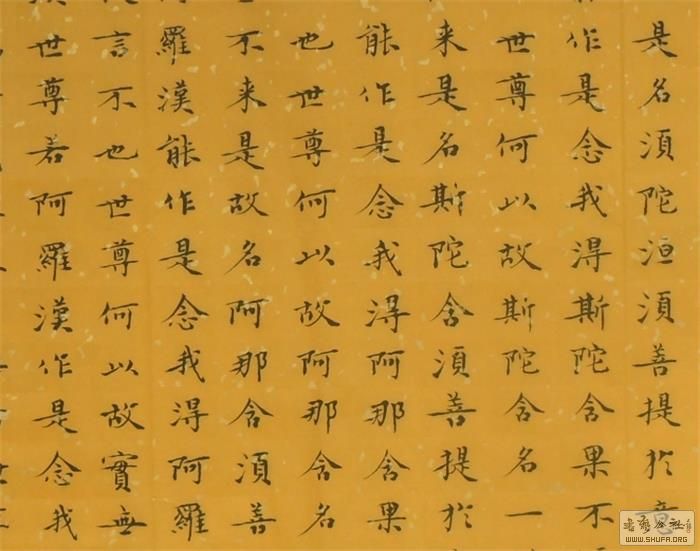 是名須陀洹須菩提於意
作是念我得斯陀含果不
世尊何以故斯陀含名一
来是名斯陀含須菩提於
能作是念我得阿那含果
也世尊何以故阿那含名
不来是故名阿那含須菩
羅漢能作是念我得阿羅
言不也世尊何以故實無
世尊若阿羅漢作是念我
WWW.SHUFA.ORG